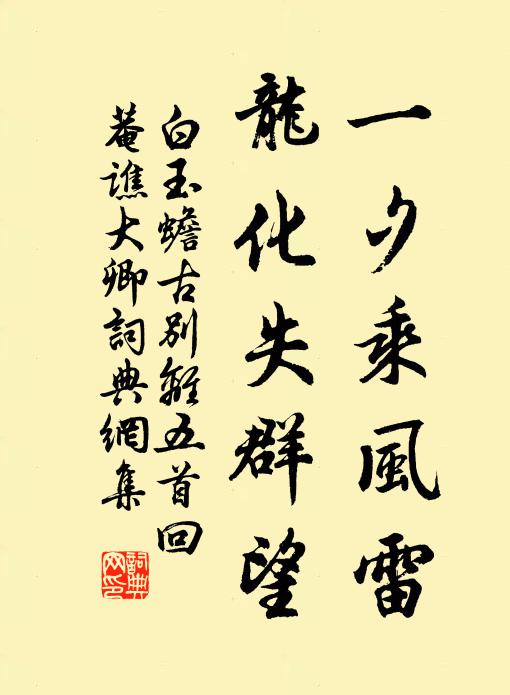 一夕乘風雷
龍化失群望
白玉蟾古別離五首回
菴譙大卿詞典網集
詞典網印